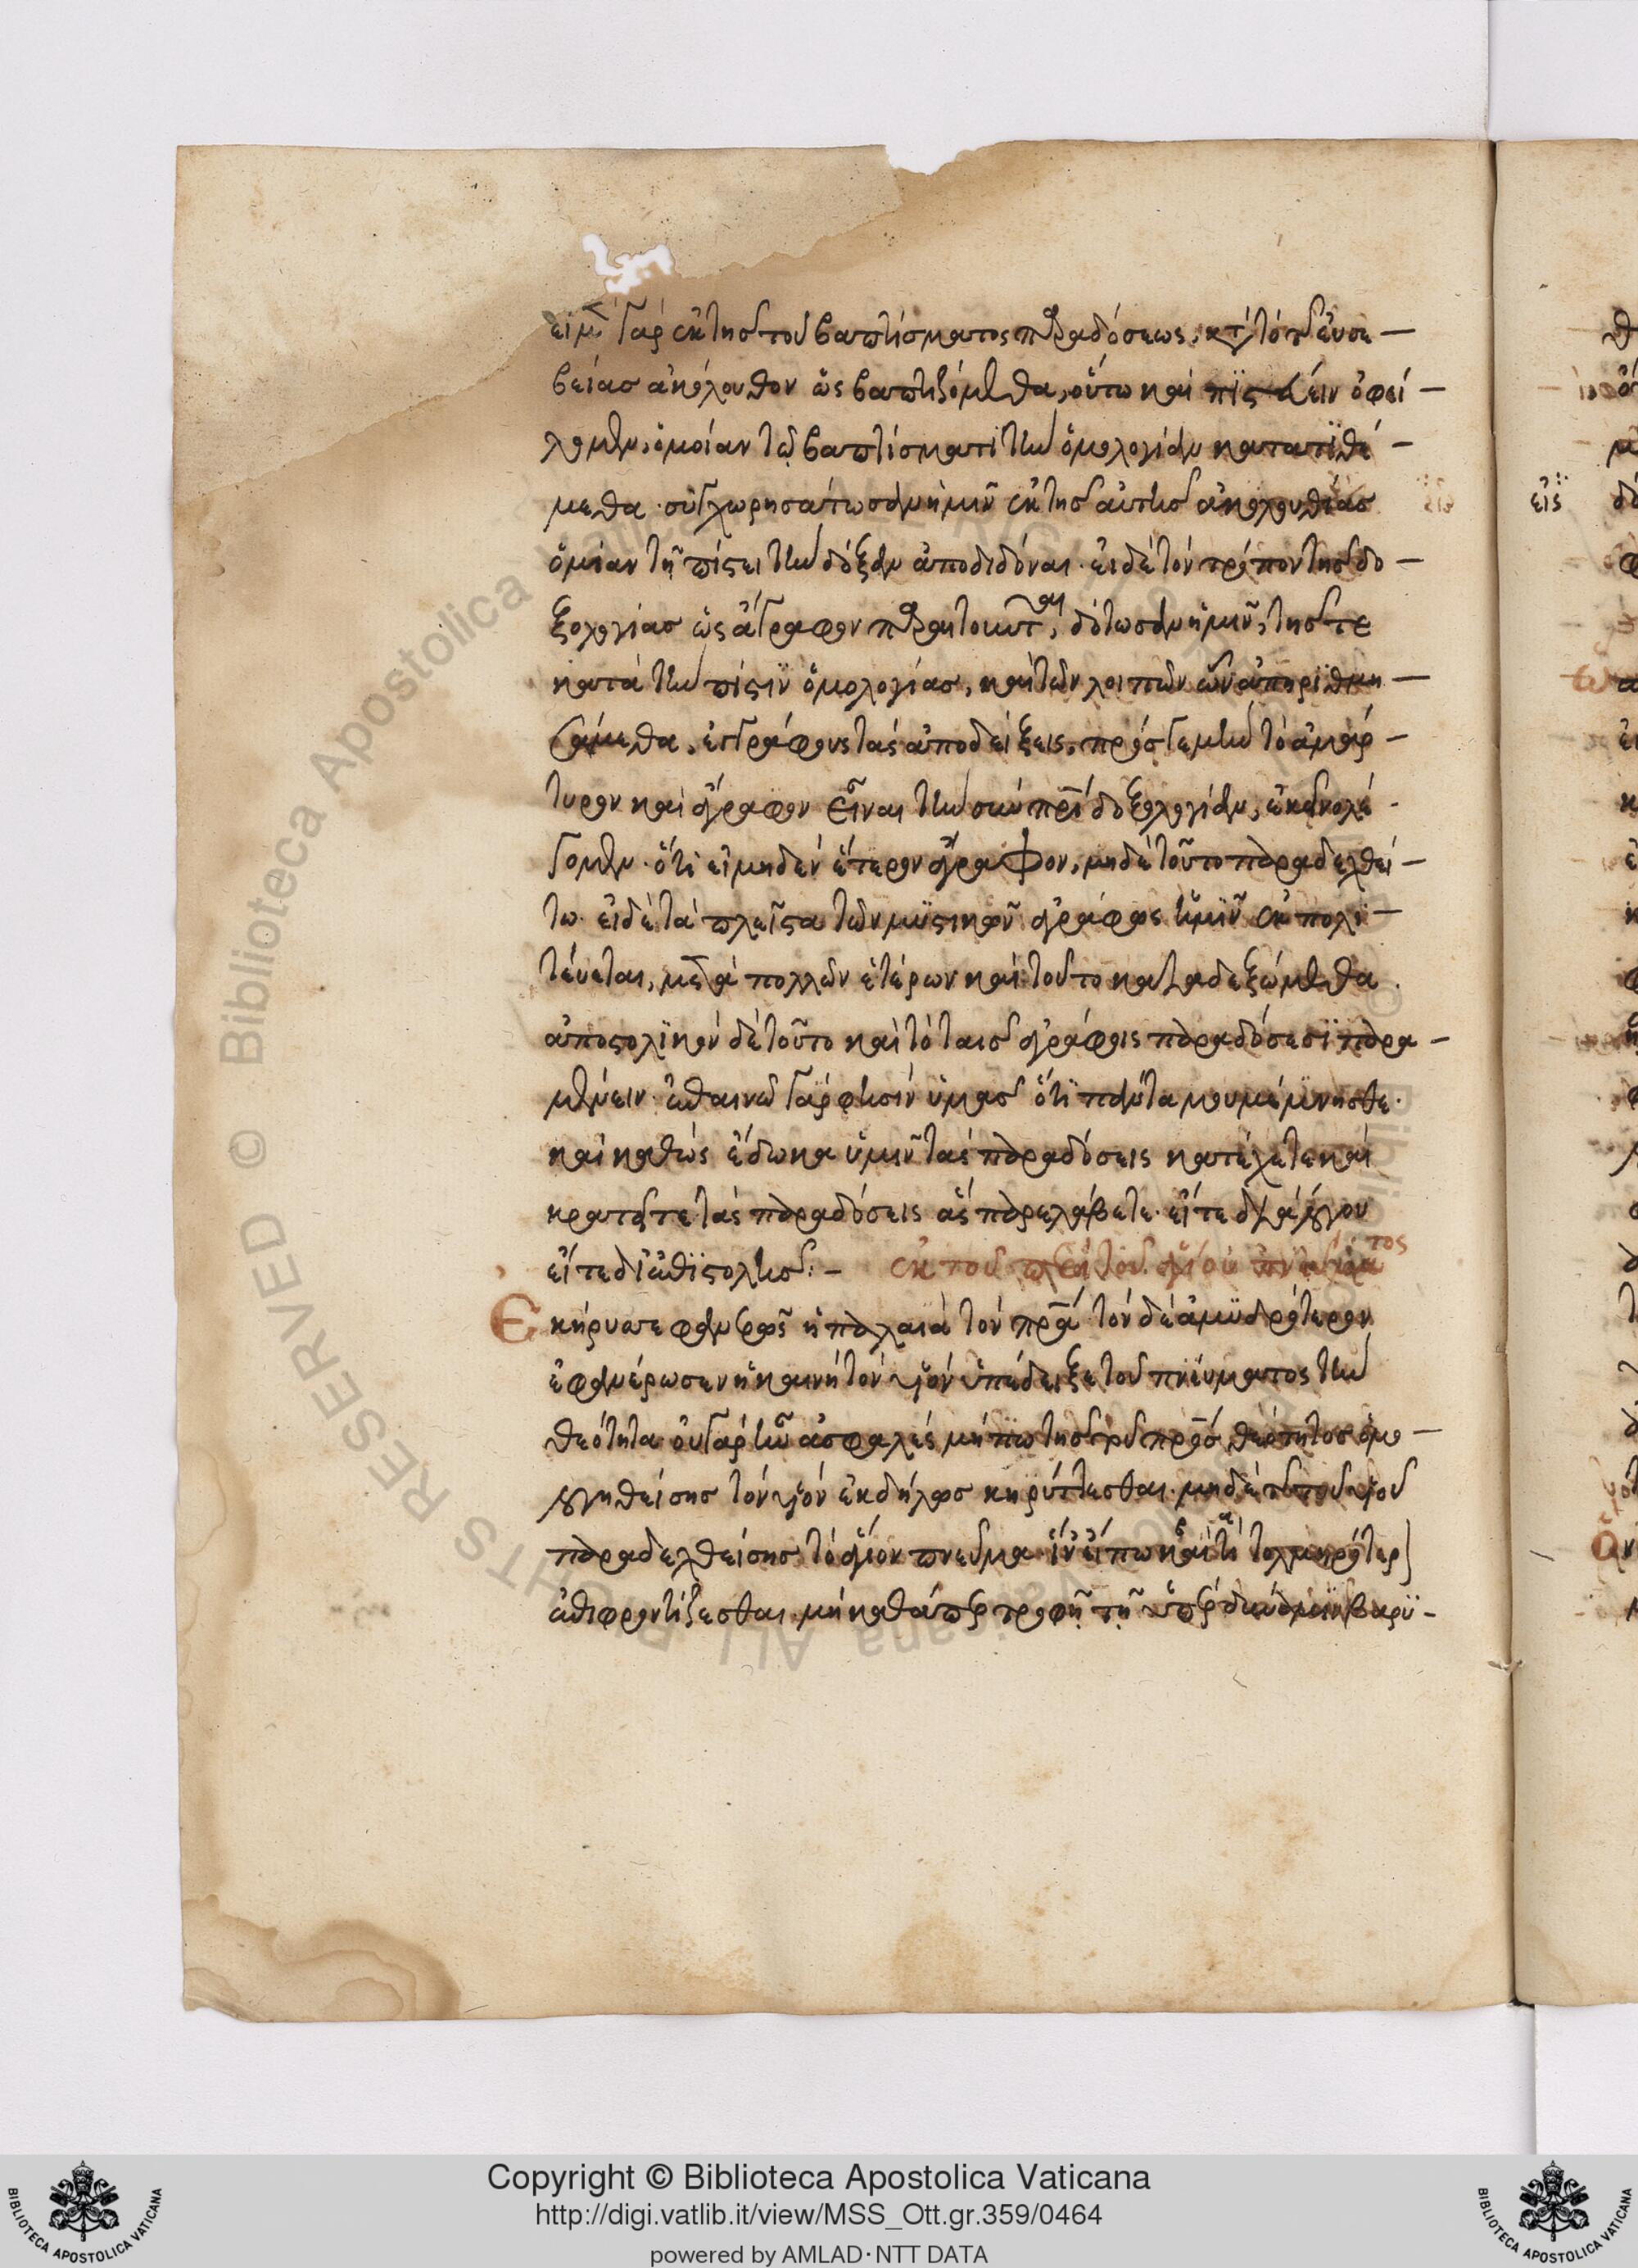 εἰ μὲν γὰρ ἐκ τῆς τοῦ βαπτίσματος παραδόσεως, κατὰ τὸ τῆς εὐσε—
βείας ἀκόλουθον ὡς βαπτιζόμεθα, οὕτω καὶ πιστεύειν ὀφεί—
λομεν, ὁμοίαν τῷ βαπτίσματι τὴν ὁμολογίαν κατατιθέ—
μεθα· συγχωρησάτωσαν ἡμῖν ἐκ τῆς αὐτῆς ἀκολουθίας
ὁμίαν τῇ πίστει τὴν δόξαν ἀποδιδόναι· εἰ δὲ τὸν τρόπον τῆς δο—
ξολογίας ὡς ἄγραφον παραιτοῦνται, δότωσαν ἡμῖν, τῆς τε
κατὰ τὴν πίστιν ὁμολογίας, καὶ τῶν λοιπῶν ὧν ἀπηριθμη—
σάμεθα, ἐγγράφους τὰς ἀποδείξεις. πρός γε μὴν τὸ ἀμάρ—
τυρον καὶ ἄγραφον εἶναι τὴν σὺν πρὶ δοξολογίαν, ἐκεῖνο λέ
γομεν· ὅτι εἰ μηδὲν ἕτερον ἄγραφον, μηδὲ τοῦτο παραδεχθεί—
τω· εἰ δὲ τὰ πλεῖστα τῶν μυστικῶν ἀγράφως ἡμῖν ἐκπολι—
τεύεται, μετὰ πολλῶν ἑτέρων καὶ τοῦτο καταδεξώμεθα.
ἀποστολικὸν δὲ τοῦτο καὶ τὸ ταῖς ἀγράφοις παραδόσεσι παρα—
μένειν· ἐπαινῶ γάρ φησιν ὑμᾶς ὅτι πάντα μου μέμνησθε·
καὶ καθὼς ἔδωκα ὑμῖν τὰς παραδόσεις κατέχετε καὶ
κρατεῖτε τὰς παραδόσεις ἃς παρελάβετε· εἴτε διὰ λόγου
εἴτε δι' ἐπιστολῆς:— ἐκ τοῦ περὶ τοῦ ἁγίου πνεύματος
Εκήρυσσε φανερῶς ἡ παλαιὰ τὸν πρα· τὸν δὲ ἀμυδρότερον
ἐφανέρωσεν ἡ καινὴ τὸν υἱὸν ὑπέδειξε τοῦ πνεύματος τὴν
θεότητα οὐ γὰρ ἦν ἀσφαλὲς μήπω τῆς τοῦ πρς θεότητος ὁμο—
λογηθείσης τὸν υἱὸν ἐκδήλως κηρύττεσθαι· μηδὲ τῆς τοῦ υἱοῦ
παραδεχθείσης τὸ ἅγιον πνεῦμα ἵν' εἴπω καί τι τολμηρότερον
ἐπιφορτίζεσθαι· μὴ καθάπερ τροφῇ τῇ ὑπὲρ δύναμιν βαρυ—
εἰς